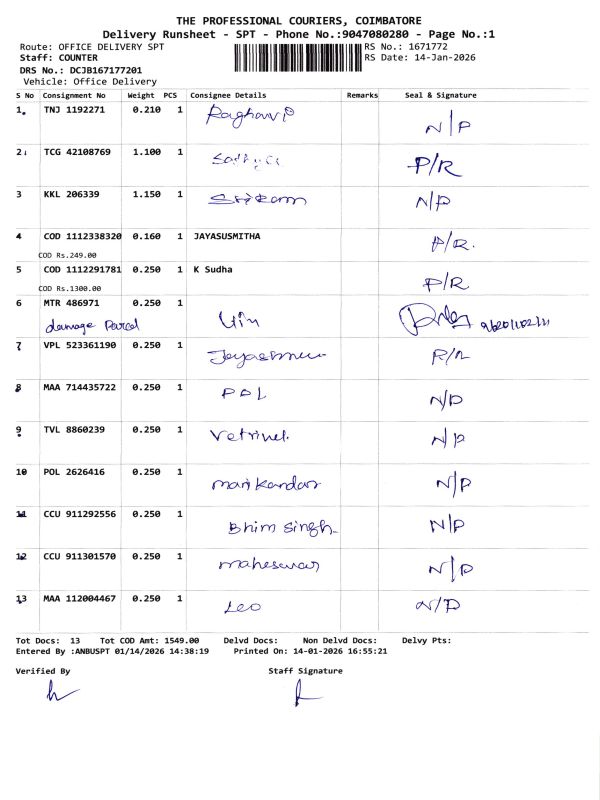 THE PROFESSIONAL COURIERS, COIMBATORE
Delivery Runsheet - SPT - Phone No.:9047080280 - Page No.:1
Route: OFFICE DELIVERY SPT RS No.: 1671772
Staff: COUNTER RS Date: 14-Jan-2026
DRS No.: DCJB167177201
Vehicle: Office Delivery
S No Consignment No Weight PCS Consignee Details Remarks Seal & Signature
1. TNJ 1192271 0.210 1 Raghavi N/P
2. TCG 42108769 1.100 1 P/R
3 KKL 206339 1.150 1 Sriram N/P
4 COD 1112338320 0.160 1 JAYASUSMITHA P/R.
COD Rs.249.00
5 COD 1112291781 0.250 1 K Sudha P/R
COD Rs.1300.00
6 MTR 486971 0.250 1
damage Parcel
7 VPL 523361190 0.250 1 R/R
8 MAA 714435722 0.250 1 N/P
9 TVL 8860239 0.250 1 Vetrivel. N/P
10 POL 2626416 0.250 1 Manikandan N/P
11 CCU 911292556 0.250 1 Bhim Singh N/P
12 CCU 911301570 0.250 1 Maheswar N/P
13 MAA 112004467 0.250 1 Leo N/P
Tot Docs: 13 Tot COD Amt: 1549.00 Delvd Docs: Non Delvd Docs: Delvy Pts:
Entered By :ANBUSPT 01/14/2026 14:38:19 Printed On: 14-01-2026 16:55:21
Verified By Staff Signature